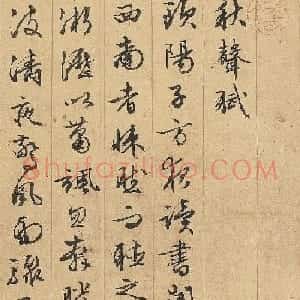 秋聲賦
歐陽子方夜讀書聞
西南者悚然而聽之
淅瀝以蕭颯忽奔騰
波濤夜驚風雨驟